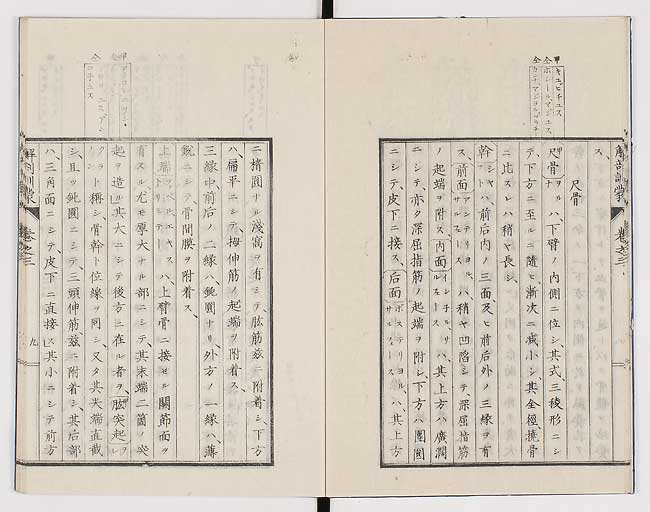 ス、
尺骨
尺骨ハ、下臂ノ内側ニ位シ、其式、三稜形ニシ
テ、下方ニ至ルニ隨ヒ、漸次ニ減小シ、其全徑、撓骨
ニ比スレハ稍ヤ長シ、
幹ハ、前后内ノ三面、及ヒ前后外ノ三縁ヲ有
ス、前面ハ、稍ヤ凹陷シテ、深屈指筋
ノ起端ヲ附ス、内面ハ、其上方ハ廣濶
ニシテ、亦タ深屈指筋ノ起端ヲ附シ、下方ハ團圓
ニシテ、皮下ニ接ス、后面ハ、其上方
解剖訓蒙
卷之三
ニ楕圓ナル淺窩ヲ有シテ、肱筋玆ニ附着シ、下方
ハ扁平ニシテ、拇伸筋ノ起端ヲ附着ス、
三縁中、前后ノ二縁ハ、鈍圓ナリ、外方ノ一縁ハ、薄
鋭ニシテ、骨間膜ヲ附着ス、
上端ハ、上臂骨ニ接セル關節面ヲ
有スル、尤モ厚大ナル部ニシテ、其末端二箇ノ突
起ヲ造ル、其大ニシテ後方ニ在ル者ヲ肱突起
クラト稱シ、骨幹ト位線ヲ同シ、又タ其尖端直截
シ、且ツ鈍圓ニシテ、三頭伸筋玆ニ附着シ、其后部
ハ、三角面ニシテ、皮下ニ直接ス、其小ニシテ前方
解剖訓蒙
卷之三
九